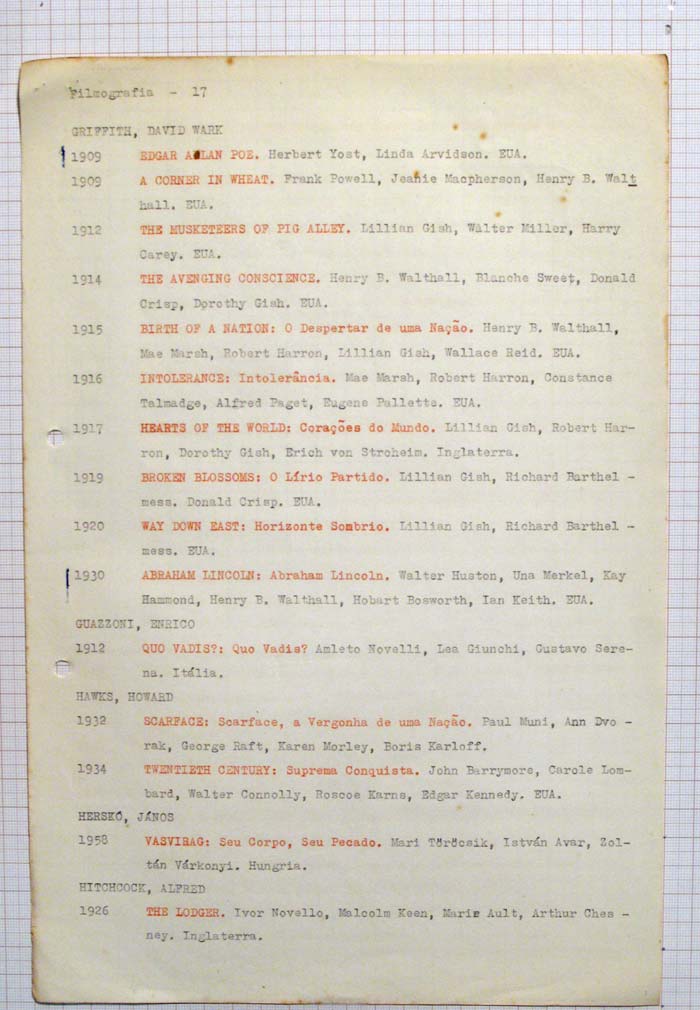 Filmografia - 17
GRIFFITH, DAVID WARK
1909 EDGAR ALLAN POE. Herbert Yost, Linda Arvidson. EUA.
1909 A CORNER IN WHEAT. Frank Powell, Jeanie Macpherson, Henry B. Walt
hall. EUA.
1912 THE MUSKETEERS OF PIG ALLEY. Lillian Gish, Walter Miller, Harry
Carey. EUA.
1914 THE AVENGING CONSCIENCE. Henry B. Walthall, Blanche Sweet, Donald
Crisp, Dorothy Gish. EUA.
1915 BIRTH OF A NATION: O Despertar de uma Nação. Henry B. Walthall,
Mae Marsh, Robert Harron, Lillian Gish, Wallace Reid. EUA.
1916 INTOLERANCE: Intolerância. Mae Marsh, Robert Harron, Constance
Talmadge, Alfred Paget, Eugene Pallette. EUA.
1917 HEARTS OF THE WORLD: Corações do Mundo. Lillian Gish, Robert Har-
ron, Dorothy Gish, Erich von Stroheim. Inglaterra.
1919 BROKEN BLOSSOMS: O Lírio Partido. Lillian Gish, Richard Barthel -
mess. Donald Crisp. EUA.
1920 WAY DOWN EAST: Horizonte Sombrio. Lillian Gish, Richard Barthel -
mess. EUA.
1930 ABRAHAM LINCOLN: Abraham Lincoln. Walter Huston, Una Merkel, Kay
Hammond, Henry B. Walthall, Hobart Bosworth, Ian Keith. EUA.
GUAZZONI, ENRICO
1912 QUO VADIS?: Quo Vadis? Amleto Novelli, Lea Giunchi, Gustavo Sere-
na. Itália.
HAWKS, HOWARD
1932 SCARFACE: Scarface, a Vergonha de uma Nação. Paul Muni, Ann Dvo -
rak, George Raft, Karen Morley, Boris Karloff.
1934 TWENTIETH CENTURY: Suprema Conquista. John Barrymore, Carole Lom-
bard, Walter Connolly, Roscoe Karns, Edgar Kennedy. EUA.
HERSKÓ, JÁNOS
1958 VASVIRAG: Seu Corpo, Seu Pecado. Mari Töröcsik, István Avar, Zol-
tán Várkonyi. Hungria.
HITCHCOCK, ALFRED
1926 THE LODGER. Ivor Novello, Malcolm Keen, Marie Ault, Arthur Ches -
ney. Inglaterra.